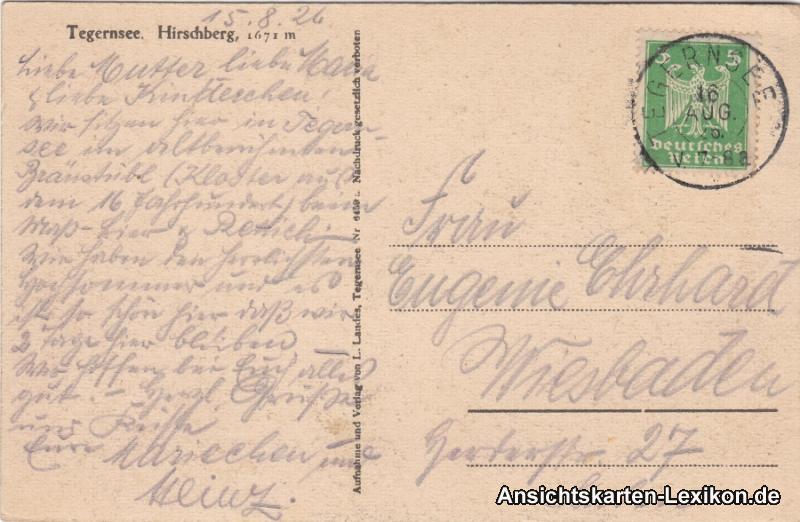 15.8.26
Tegernsee. Hirschberg, 1671 m
Liebe Mutter liebe Maria
& liebe Kinderchen!
Wir sitzen hier in Tegern-
see im altberühmten
Bräustübl (Kloster aus
dem 16 Jahrhundert) beim
Maß-Bier & Rettich.
Wir haben den herrlichsten
Hochsommer und es
ist so schön hier daß wir
2 Tage hier bleiben
Wir hoffen bei Euch alles
gut – Herzl. Grüße
und Küsse
Eure Mariechen und
Heinz.
Aufnahme und Verlag von L. Landes, Tegernsee Nr 6459. Nachdruck gesetzlich verboten
5 5
Deutsches
Reich
TEGERNSEE
16
AUG.
V. 8a
Frau
Eugenie Ehrhard
Wiesbaden
Herderstr. 27
Ansichtskarten-Lexikon.de